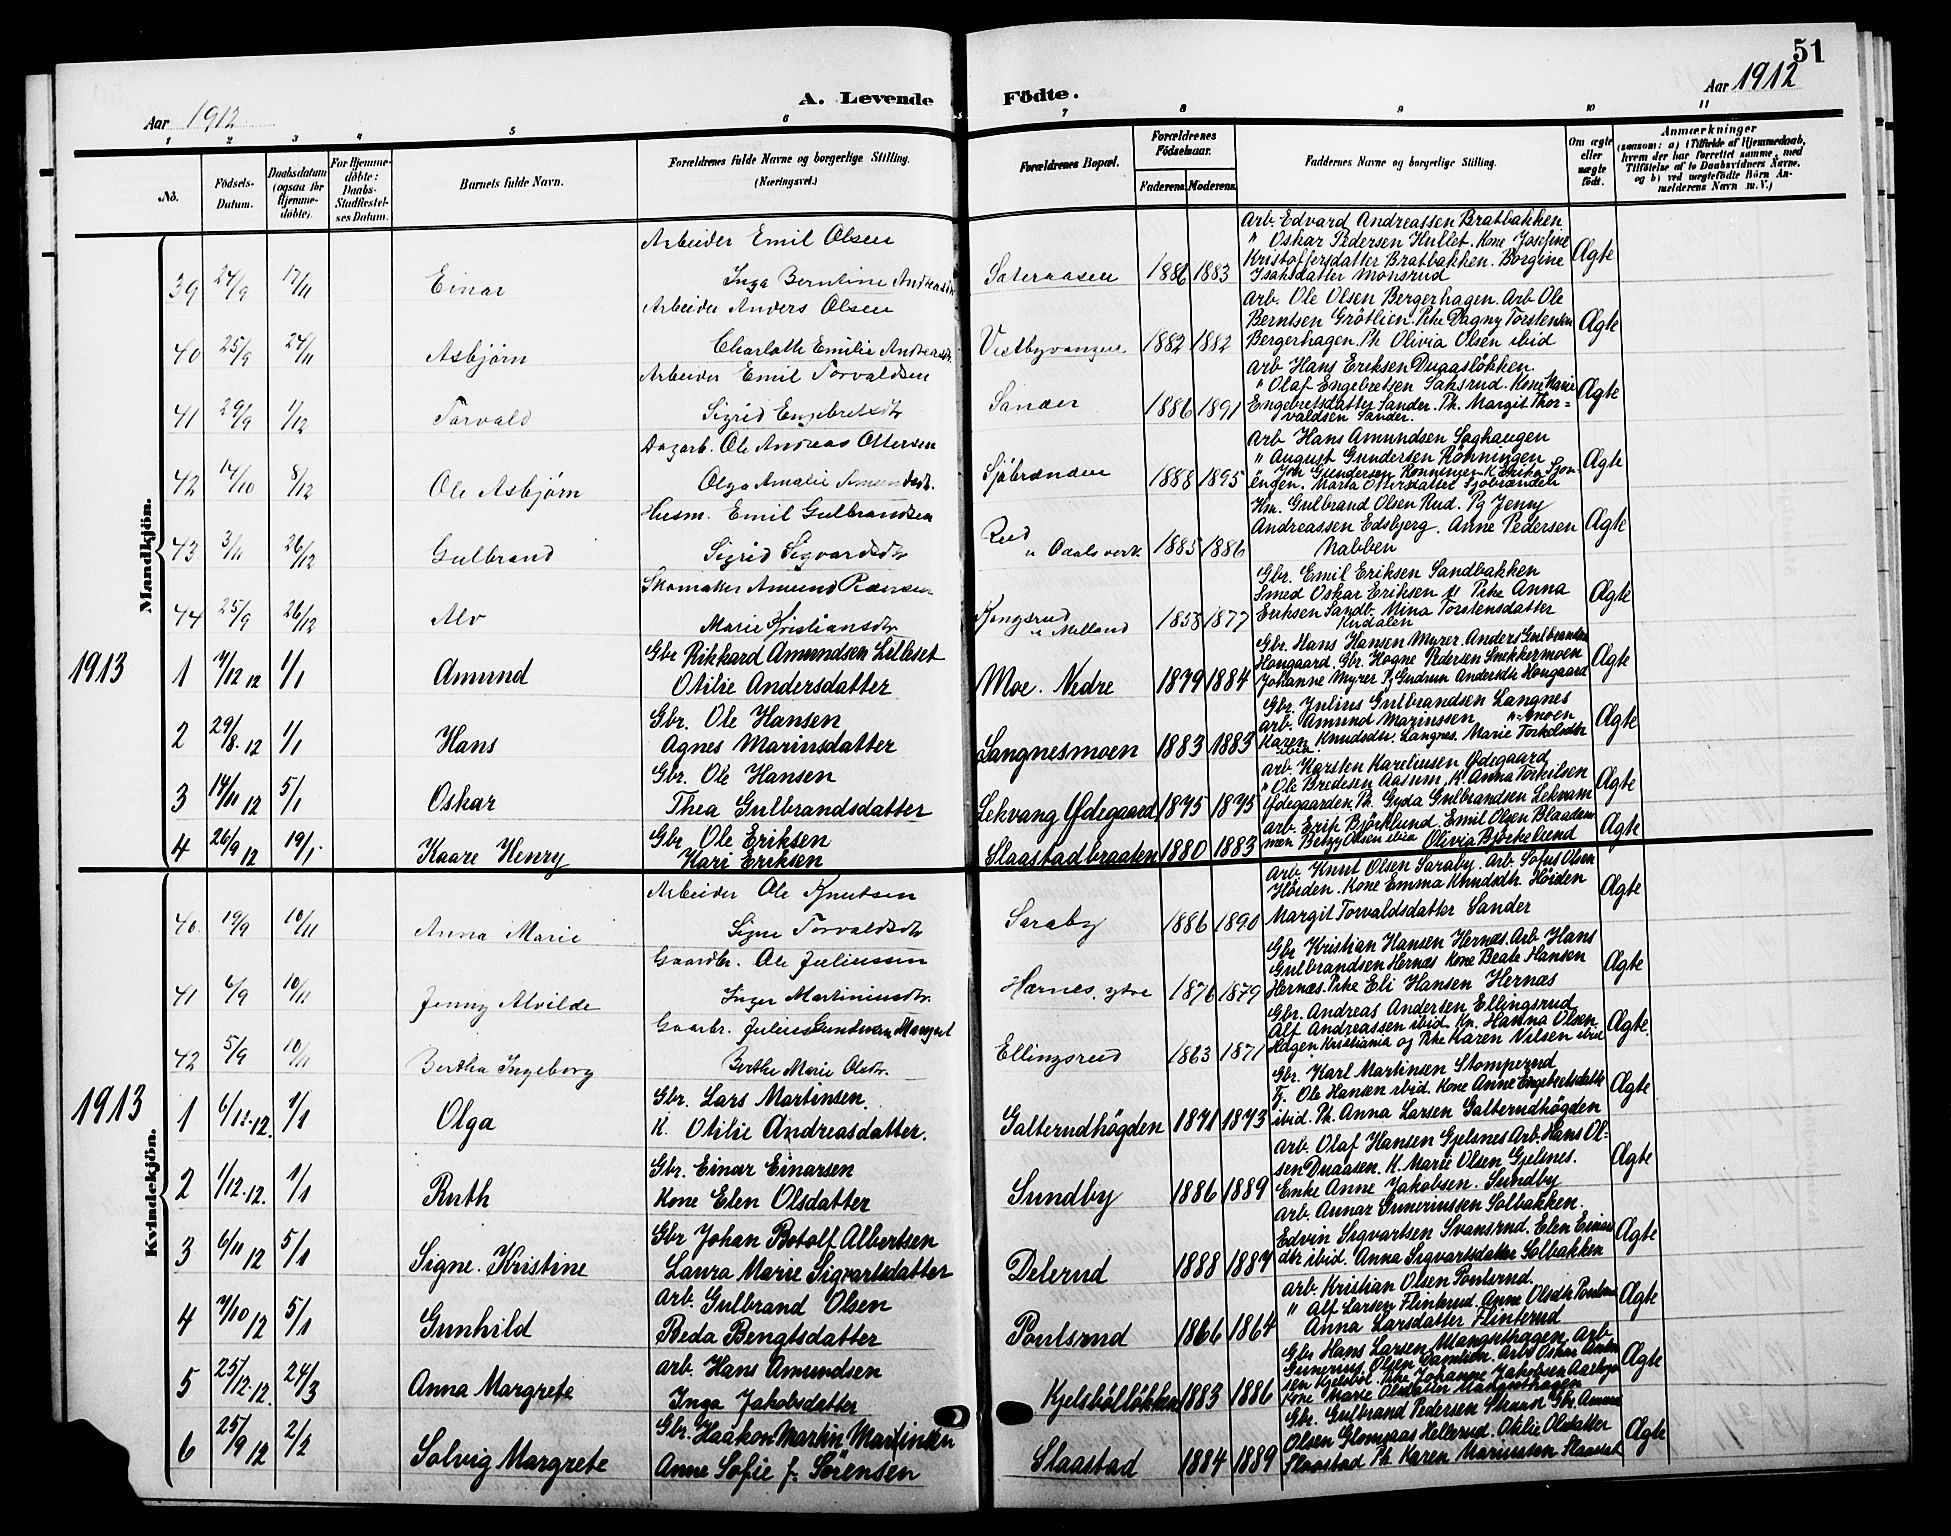 51
Aar 1912
A. Levende Födte.
Aar 1912
1 2 3 4 5 6 7 8 9 10 11
No.
Födsels-Datum.
Daabsdatum (ogsaa for Hjemmedöbte).
For Hjemmedöbte: Daabs-Stadfæstelses Datum.
Barnets fulde Navn.
Forældrenes fulde Navne og borgerlige Stilling. (Næringsvei.)
Forældrenes Bopæl.
Forældrenes Födselsaar.
Faderens. Moderens.
Faddernes Navne og borgerlige Stilling.
Om ægte eller uægte født.
Anmærkninger
(saasom: a) i Tilfælde af Hjemmedaab, hvem der har forrettet samme, med Tilföielse af to Daabsvidners Navne, og b) ved uægtefödte Börn Anmelderens Navn m. V.)
Mandkjön.
39 24/9 17/11 Einar
Arbeider Emil Olsen
Inga Berntine Andreasdtr
Sateraasen 1886 1883
Arb. Edvard Andreassen Bratbakken
" Oskar Pedersen Hullet. Kone Josefine
Kristoffersdatter Bratbakken. Borgine
Isaksdatter Monsrud
Ægte
40 25/9 24/11 Asbjørn
Arbeider Anders Olsen
Charlotte Emilie Andreasdtr.
Vestbyvangen 1882 1882
Arb. Ole Olsen Bergerhagen. Arb Ole
Berntsen Grötlien. Pike Dagny Torstensen
Bergerhagen. Pk Olivia Olsen ibid
Ægte
41 29/9 1/12 Torvald
Arbeider Emil Torvaldsen
Sigrid Engebretsdtr
Sander 1886 1891
Arb Hans Eriksen Duaasløkken.
" Olaf Engebretsen Saksrud. Kone Marie
Engebretsdatter Sander. Pk. Margit Thor=
valdsen Sander.
Ægte
42 14/10 8/12 Ole Asbjørn
Dagarb. Ole Andreas Ottersen
Olga Amalie
Sjöbrænden 1888 1895
Arb Hans Amundsen Saghaugen
" August Gundersen Rönningen
" Joh Gundersen Rönningen K. Erika
Marta Ottersdatter Sjöbrænden
Ægte
43 3/11 26/12 Gulbrand
Husm. Emil Gulbrandsen
Sigrid Sigvardsdtr
Rud
u Odals verk. 1885 1886
Hm. Gulbrand Olsen Rud. Pg Jenny
Andreassen Edsbjerg. Anne Pedersen
Nabben
Ægte
44 25/9 26/12 Alv
Skomaker Amund
Marie Kristiansdtr
Kongsrud
u Melland 1858 1877
Gbr. Emil Eriksen Sandbakken
Smed Oskar Eriksen Pike Anna
Eriksen Sandb. Mina Torstensdatter
Kirdalen
Ægte
1913
1 7/12 12 1/1 Amund
Gbr Rikkard Amundsen Lilleset
Otilie Andersdatter
Moe. Nedre 1879 1884
Gbr. Hans Hansen Myrer. Anders Gulbrandsen
Hongaard. Gbr. Hogne Pedersen Snekkermoen
Johanne Myrer Pg Gudrun Andersdtr Hongaard
Ægte
2 29/8. 12 1/1 Hans
Gbr. Ole Hansen
Agnes Marinsdatter
Langnesmoen 1883 1883
Gbr. Julius Gulbrandsen Langnes
Arb. Amund Marinssen "- moen
Karen Knudsdtr. Langnes. Marie Torkelsdtr
ibid.
Ægte
3 14/11 12 5/1 Oskar
Gbr. Ole Hansen
Thea Gulbrandsdatter
Lekvang Ødegaard 1875 1875
Arb Karsten Kareliusen Ødegaard
" Ole Bredesen Aasum, K. Anna Torkilsen
Ødegaarden. Pk. Gyda Gulbrandsen Lekvam
Ægte
4 26/9 12 19/1. Kaare Henry
Gbr Ole Eriksen
Kari Eriksen
Slaastadbraaten 1880 1883
Arb. Erik Björklund. Emil Olsen
Betzy Olsen ibid Olivia Bjorkelund
Ægte
Kvindekjön.
40. 19/9 10/11 Anna Marie
Arbeider Ole Knutsen
Signe Torvaldsdtr
Saraby 1886 1890
Arb. Knut Olsen Saraby. Arb. Sofus Olsen
Höiden. Kone Emma Knudsdtr. Höiden
Margit Torvaldsdatter Sander
Ægte
41 6/9 10/11 Jenny Alvilde
Gaardbr. Ole Juliussen
Inger Martiniusdtr.
Hernes, ytre 1876 1879
Gbr Kristian Hansen Hernes. Arb Hans
Gulbrandsen Hernes Kone Beate Hansen
Hernes. Pike Eli Hansen Hernes
Ægte
42 5/9 10/11 Bertha Ingeborg
Gaarbr. Julius Gundersen Mangset
Berthe Marie Olsdtr.
Ellingsrud 1863 1871
Gbr. Andreas Andersen Ellingsrud
Alf Andreassen ibid. Kn. Hanna Olsen
Hagen Kristiania og Pike Karen Nilsen ibid
Ægte.
1913
1 6/12.12. 1/1 Olga
Gbr. Lars Martinsen.
K. Otilie Andreasdatter.
Galterudhögden 1871 1873
Gbr. Karl Martinsen Stomperud
F. Ole Hansen ibid. Kone Anne Engebretsdatter
ibid. Pk. Anna Larsen Galterudhögden
Ægte
2 1/12.12. 1/1 Ruth
Gbr. Einar Einarsen
Kone Elen Olsdatter
Sundby 1886 1889
Arb. Olaf Hansen Gjelsnes Arb. Hans Ol=
sen Duaasen. K. Marie Olsen Gjelsnes.
Enke Anne Jakobsen. Sundby
Ægte
3 6/11 12 5/1 Signe. Kristine
Gbr Johan Botolf Albertsen
Laura Marie Sigvartsdatter
Delerud 1888 1887
Arb. Annar Gunerinssen Solbakken.
Edvin Sigvartsen Svansrud. Elen Einar
dtr ibid. Anna Sigvartsdatter Solbakken
Ægte
4 7/10 12 5/1 Gunhild
Arb. Gulbrand Olsen
Beda Bengtsdatter
Poulsrud 1866 1864
Arb. Kristian Olsen Poulsrud.
" Alf Larsen Flinterud Anne Olsdtr Poulsrud
Anna Larsdatter Flinterud
Ægte
5 25/12.12. 24/3 Anna Margrete
Arb. Hans Amundsen
Inga Jakobsdatter
Kjelsbølløkken 1883 1886
Gbr Hans Larsen Mangsthagen Arb.
Gunerius Olsen Damlien. Arb. Oskar
sen Kjelsböl. Pike Johanne Jakobsen
Kone Marie Olsdatter Mangsthagen
Ægte
6 25/9 12 2/2 Solvig Margrete
Gbr. Haakon Martin Martinsen
Anne Sofie f. Sörensen
Slaastad 1884 1889
Gbr. Gulbrand Pedersen Gbr. Amund
Olsen Glomaas Hellerud. Otilie Olsdatter
Slaastad Pk. Karen Mariussen Slaastad
Ægte